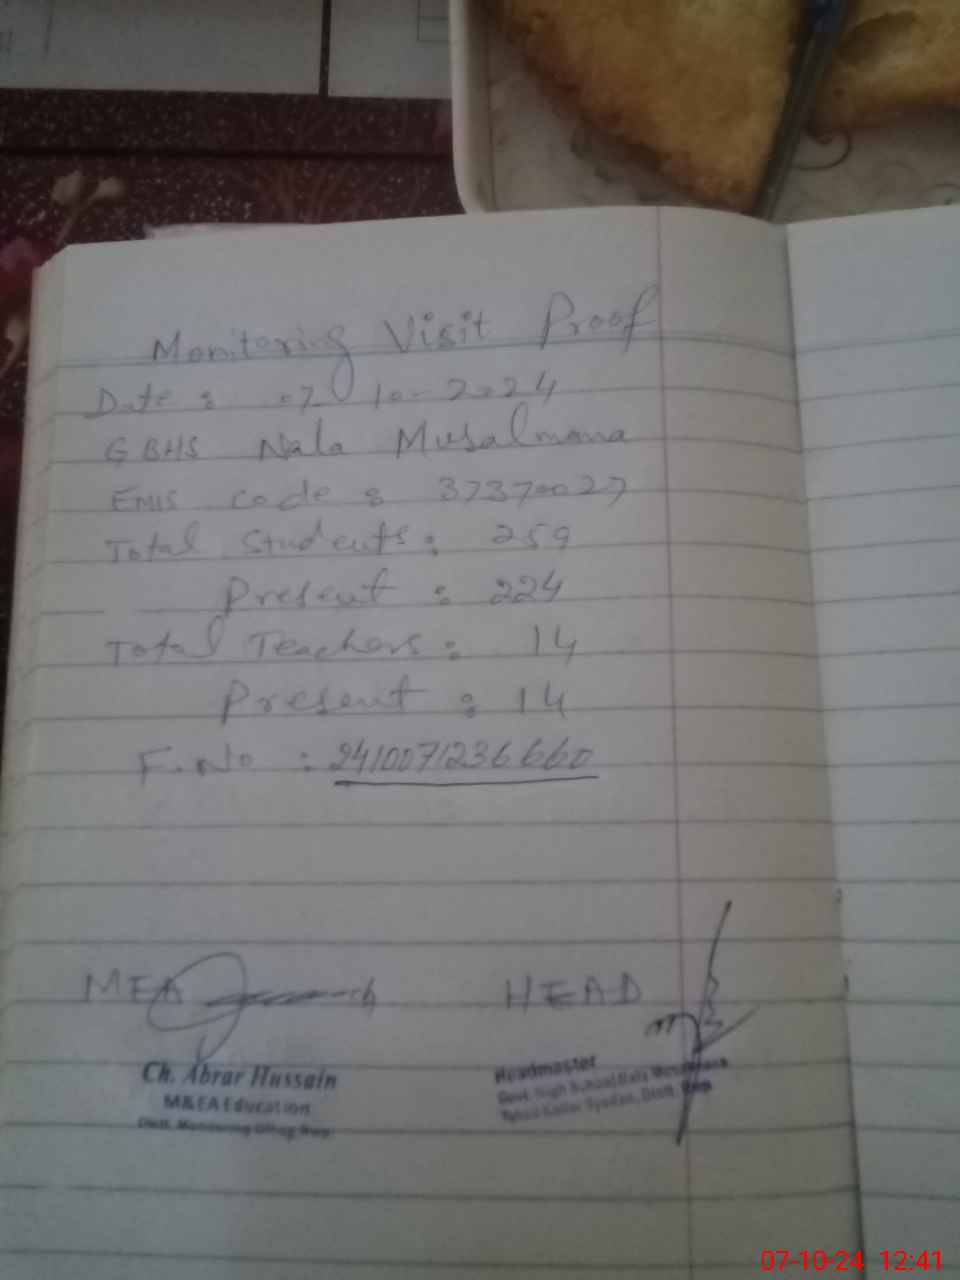 Monitoring Visit Proof
Date : 07-10-2024
GBHS Nala Musalmana
EMIS Code : 37370027
Total Students : 259
Present : 224
Total Teachers : 14
Present : 14
F.No : 2410071236660
MEA HEAD
Ch. Abrar Hussain
M&EA Education
Distt. Monitoring Office Rwp
Headmaster
Govt. High School Nala Musalmana
Tehsil Kallar Syedan, Distt. Rwp
07-10-24 12:41